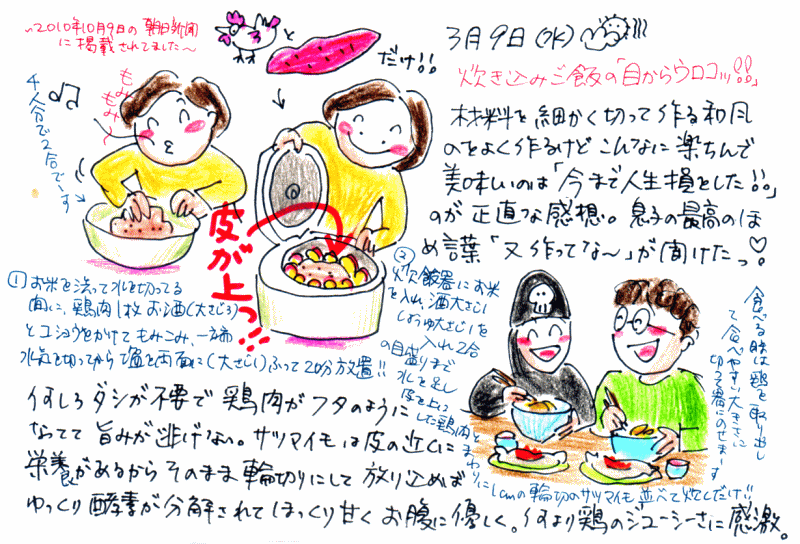 〜2010年10月9日の朝日新聞
に掲載されてました〜
だけ!!
3月9日(水)
炊き込みご飯の「目からウロコッ!!」
材料を細かく切って作る和風
のをよく作るけどこんなに楽ちんで
美味しいのは「今まで人生損をした!!」
のが正直な感想。息子の最高のほ
め言葉「又作ってな〜」が聞けたっ♡
もみ
もみ
4人分で2合で〜す
皮が上っ!!
①お米を洗って水を切ってる
間に、鶏肉1枚お酒(大さじ3)
とコショウをかけてもみこみ、一端
水気を切ってから塩を両面に(大さじ1)ふって20分放置!!
②
炊飯器にお米
を入れ、酒大さじ1
しょうゆ大さじ1を
入れ2合
の目盛りまで
水を足し
皮を上にし
した鶏肉と
まわりに1cmの輪切のサツマイモ並べて炊くだけ!!
食べる時は鶏を取り出し
て食べやすい大きさに
切って器にのせま〜す
何しろダシが不要で鶏肉がフタのように
なってて旨みが逃げない。サツマイモは皮の近くに
栄養があるからそのまま輪切りにして放り込めば
ゆっくり酵素が分解されてほっくり甘くお腹に優しく。何より鶏のジューシーさに感激。